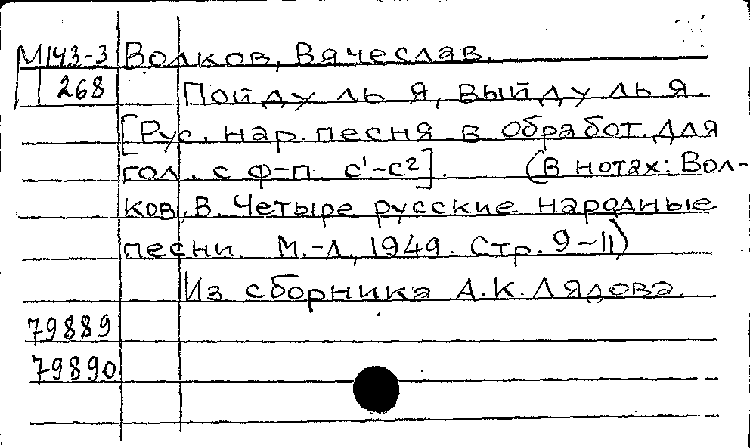 М143-3 Волков, Вячеслав.
268 Пойду ль я, выйду ль я.
[Рус. нар. песня в обработ. для
гол. с ф-п. c¹-c²]. (В нотах: Вол-
ков, В. Четыре русские народные
песни. М.-Л., 1949. Стр. 9-11)
Из сборника А.К. Лядова.
79889
79890